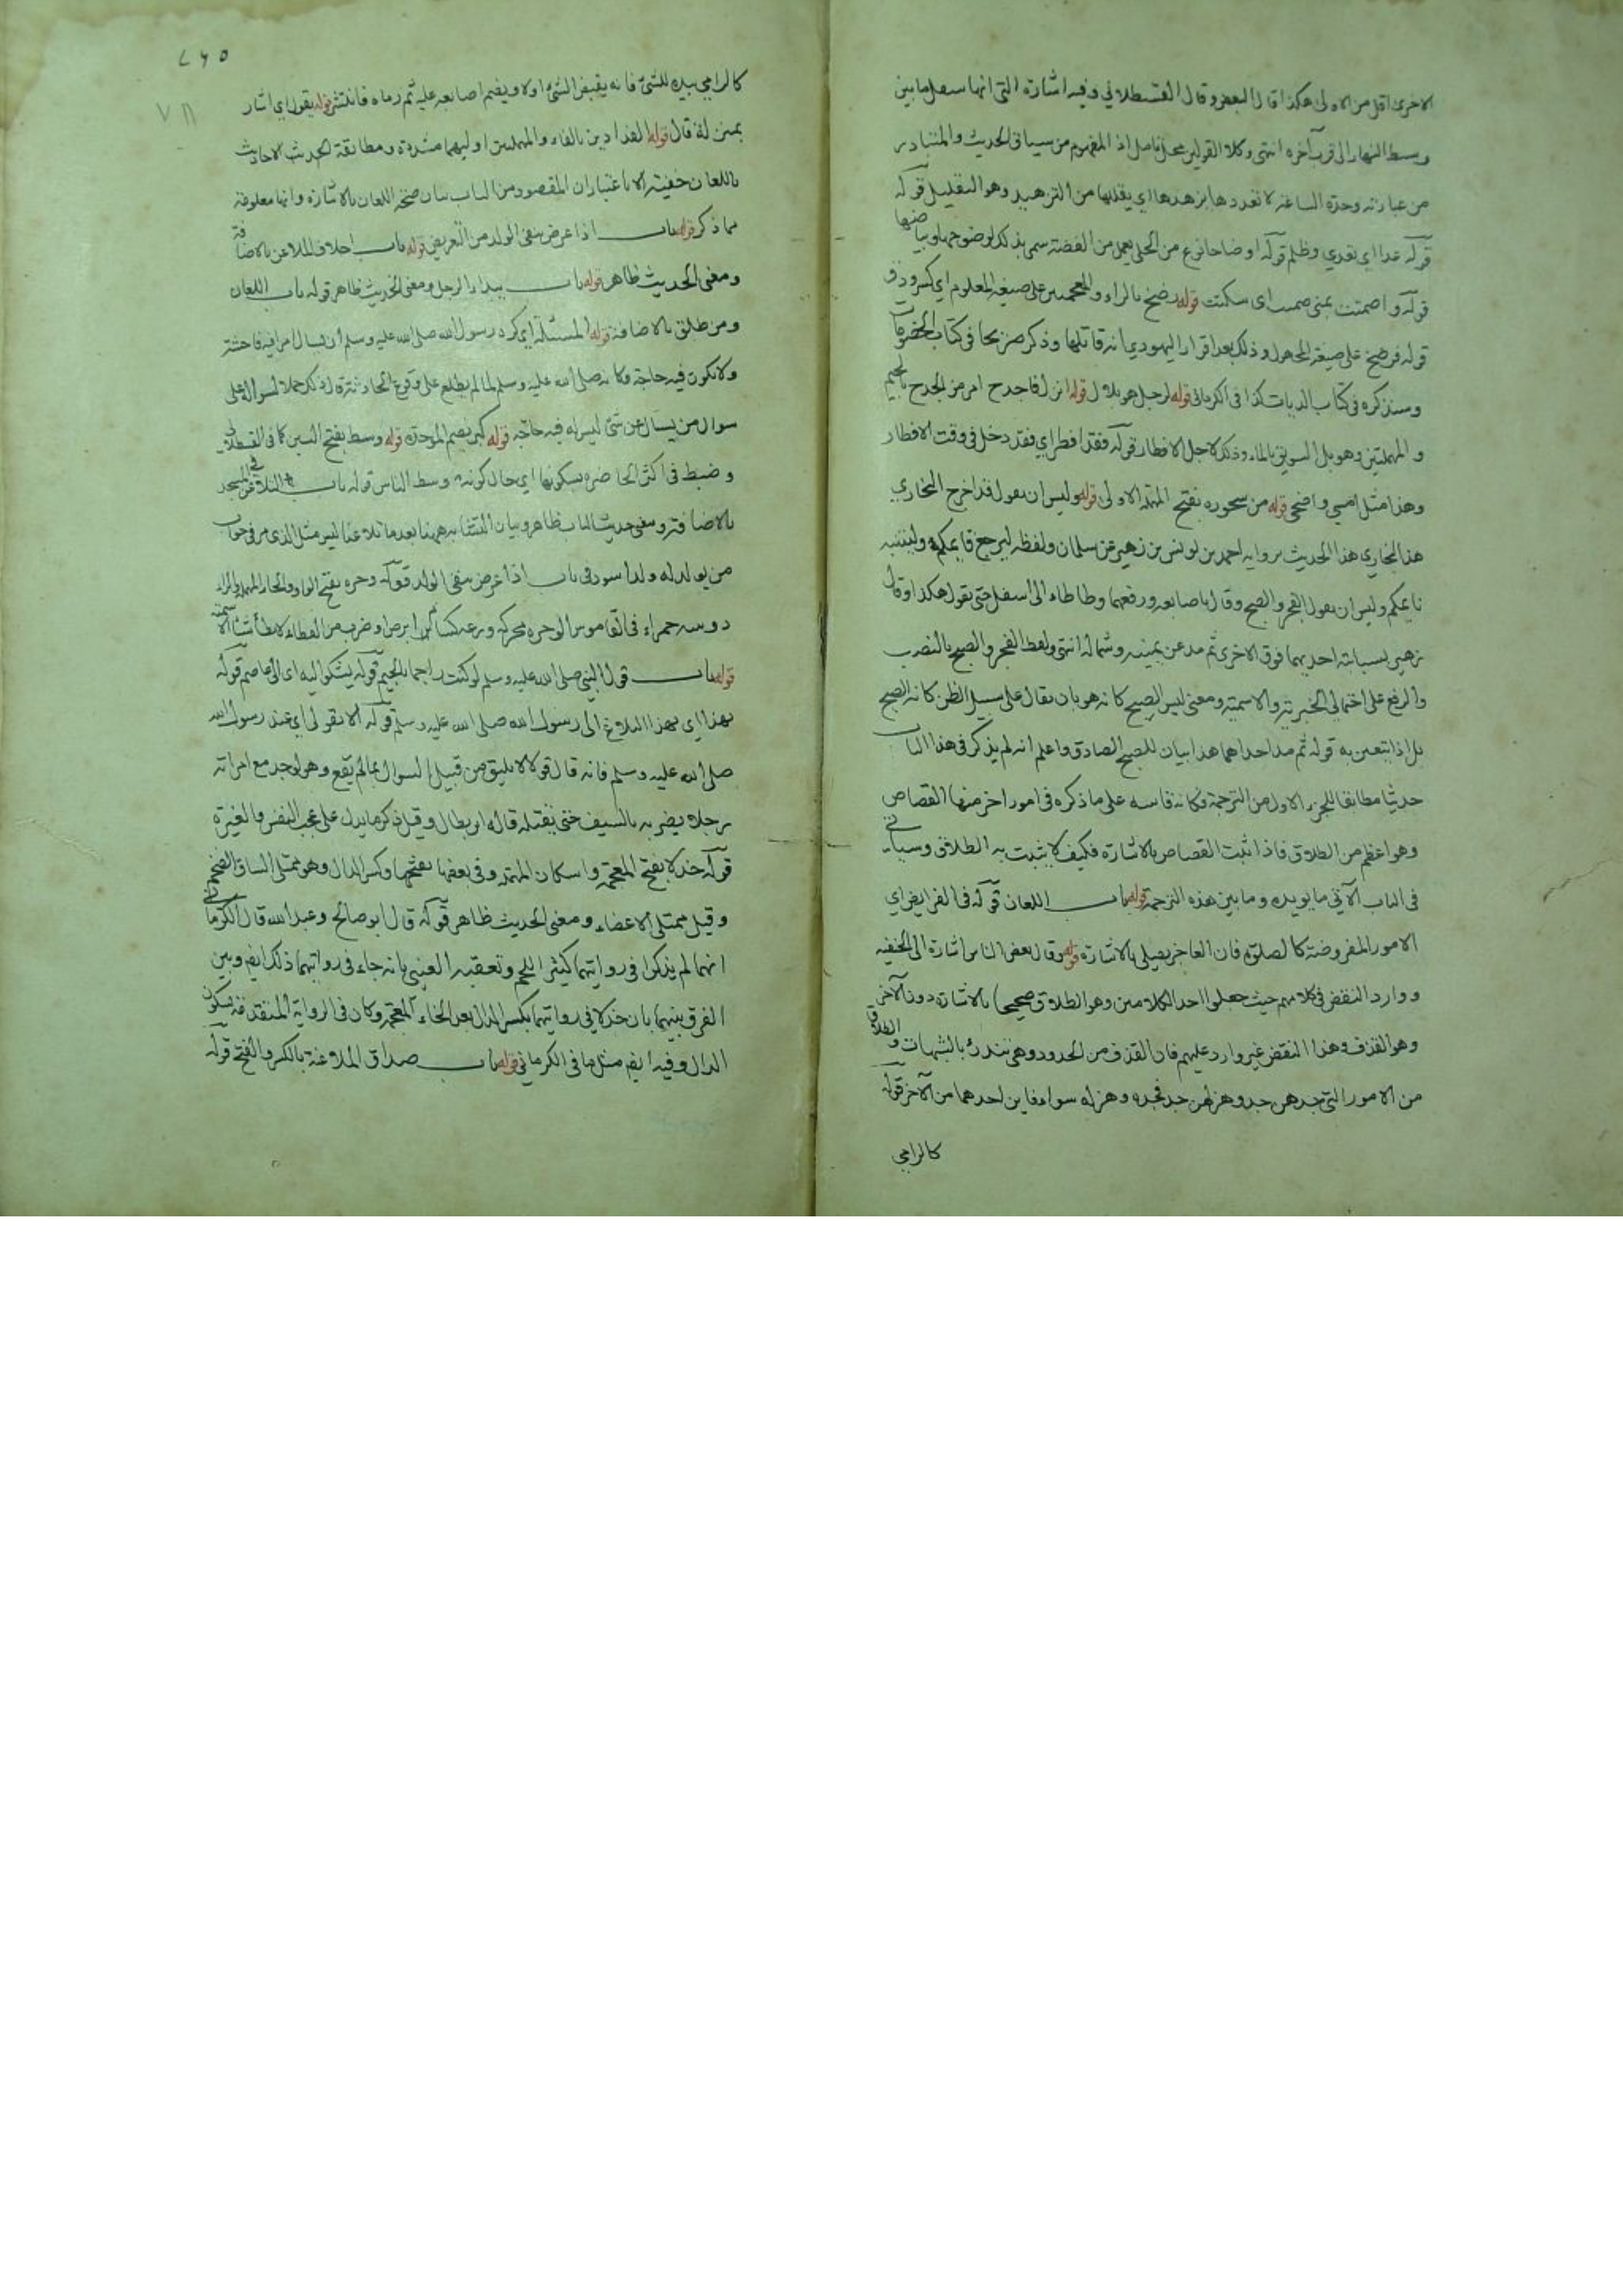 الاخرى اقل من الاولى هكذا قال البعض وقال القسطلاني وفيه اشارة الى انها ساعة ما بين
وسط النهار الى قرب آخره انتهى وكلا القولين محل تامل اذ المفهوم من سياق الحديث والمتبادر
من عبارته وحدة الساعة لا تعددها يزهدها اي يقللها من التزهيد وهو التقليل قوله
قوله عدا اي تعدي وظلم قوله اوضاحا نوع من الحلي يعمل من الفضة سمى بذلك لوضوحها وبياضها
قوله واصمتت بمعنى صمتت اى سكتت قوله رضخ بالراء والمعجمتين على صيغة المعلوم اي كسر ودق
قوله فرضخ على صيغة المجهول وذلك بعد اقرار اليهودي انه قاتلها وذكر صريحا في كتاب الخصومات
وسنذكره في كتاب الديات كذا في الكرماني قوله لرجل هو بلال قوله انزل فاجدح امر من الجدح بالجيم
و المهملتين وهو بل السويق بالماء وذلك لاجل الافطار قوله فقد افطر اي فقد دخل في وقت الافطار
وهذا مثل امسى واضحى قوله من سحوره بفتح المهملة الاولى قوله وليس ان يقول قد اخرج البخاري
هذا البخاري هذا الحديث برواية احمد بن يونس بن زهير عن سلمان ولفظه ليرجع قايمكم ولينتبه
نايمكم وليس ان يقول الفجر والصبح وقال باصابعه ورفعها وطاطاء الى اسفل حتى يقول هكذا وقال
زهير بسبابته احديهما فوق الاخرى ثم مد عن يمينه وشماله انتهى ولفظ الفجر والصبح بالنصب
والرفع على احتمالي الخبرية والاسمية ومعنى ليس الصبح كانه هو بان يقال على سبيل الظن كانه الصبح
بل اذا يتعين به قوله ثم مد احداهما هذا بيان للصبح الصادق واعلم انه لم يذكر في هذا الباب
حديثا مطابقا للجزء الاول من الترجمة فكانه قاسه على ما ذكره في امور اخر منها القصاص
وهو اعظم من الطلاق فاذا ثبت القصاص بالاشارة فكيف لا يثبت به الطلاق وسياتي
في الباب الآتي ما يويده وما بين هذه الترجمة قوله باب اللعان قوله في الفرايض اي
الامور المفروضة كالصلوة فان العاجز يصلي بالاشارة قوله وقال بعض الناس اشارة الى الحنفيه
ووارد النقض في كلامهم حيث جعلوا احد الكلامين وهو الطلاق صحيحا بالاشارة دون الآخر
وهو القذف وهذا النقض غير وارد عليهم فان القذف من الحدود وهي تندرئ بالشبهات والطلاق
من الامور التي جدهن جد وهزلهن جد فجده وهزله سواء فاين احدهما من الآخر قوله
كالرامي
كالرامي بيده للشئ فانه يقبض الشئ اولا ويضم اصابعه عليه ثم رماه فانتشر قوله يقول اي اشار
قال قوله الفدادين بالفاء والمهملتين اوليهما مشددة ومطابقة الحديث الاحاديث
باللعان خفية الا باعتبار ان المقصود من الباب بيان صحة اللعان بالاشارة وانها معلومة
مما ذكر قوله باب اذا عرض بنفي الولد من التعريض قوله باب احلاف الملاعن بالاضافة
ومعنى الحديث ظاهر قوله باب يبدأ الرجل ومعنى الحديث ظاهر قوله باب اللعان
ومن طلق بالاضافة قوله المسئلة اي كره رسول الله صلى الله عليه وسلم ان يسال امرا فيه فاحشة
ولا تكون فيه حاجة وكانه صلى الله عليه وسلم لما لم يطلع على وقوع الحادثة قال ذلك حملا لسواله على
سوال من يسال عن شئ ليس له فيه حاجة قوله كبر بضم الموحدة قوله وسط بفتح السين كما في القسطلاني
وضبط في اكثر الحاضره بسكونها اي حال كونه وسط الناس قوله باب التلاعن في المسجد
بالاضافة ومعنى حديث الباب ظاهر وبيان التشابه ههنا بعدما تلاعنا ليس مثل الذي مر في جواب
من يولد له ولد اسود في باب اذا عرض بنفي الولد قوله وحره بفتح الواو والحاء المهملة والراء
دويبة حمراء في القاموس الوحره محركة وزغة كسام ابرص او ضرب من العظاء لا تطأ شئا الا سمته
قوله باب قول النبي صلى الله عليه وسلم لو كنت راجما بالجيم قوله يشكو اليه اى الى عاصم قوله
بهذا اي بهذا البلاغ الى رسول الله صلى الله عليه وسلم قوله الا بقولي اي عند رسول الله
صلى الله عليه وسلم فانه قال قولا لا يليق من قبيل السوال بما لم يقع وهو لو وجد مع امراته
رجلا يضربه بالسيف حتى يقتله قاله ابن بطال وقيل ذكر ما يدل على عجب النفس والغيرة
قوله خدلا بفتح المعجمة واسكان المهملة وفي بعضها بفتحها وكسر الدال وهو ممتلئ الساق الضخم
وقيل ممتلئ الاعضاء ومعنى الحديث ظاهر قوله قال ابو صالح وعبد الله قال الكرماني
انهما لم يذكرا في روايتهما كثير اللحم وتعقبه العيني بانه جاء في روايتهما ذلك ايضا وبين
الفرق بينهما بان خدلا في روايتهما بكسر الدال بعد الخاء المعجمه وكان في الرواية المتقدمة بسكون
الدال وفيه ايضا مثل ما في الكرماني قوله باب صداق الملاعنة بالكسر والفتح قوله